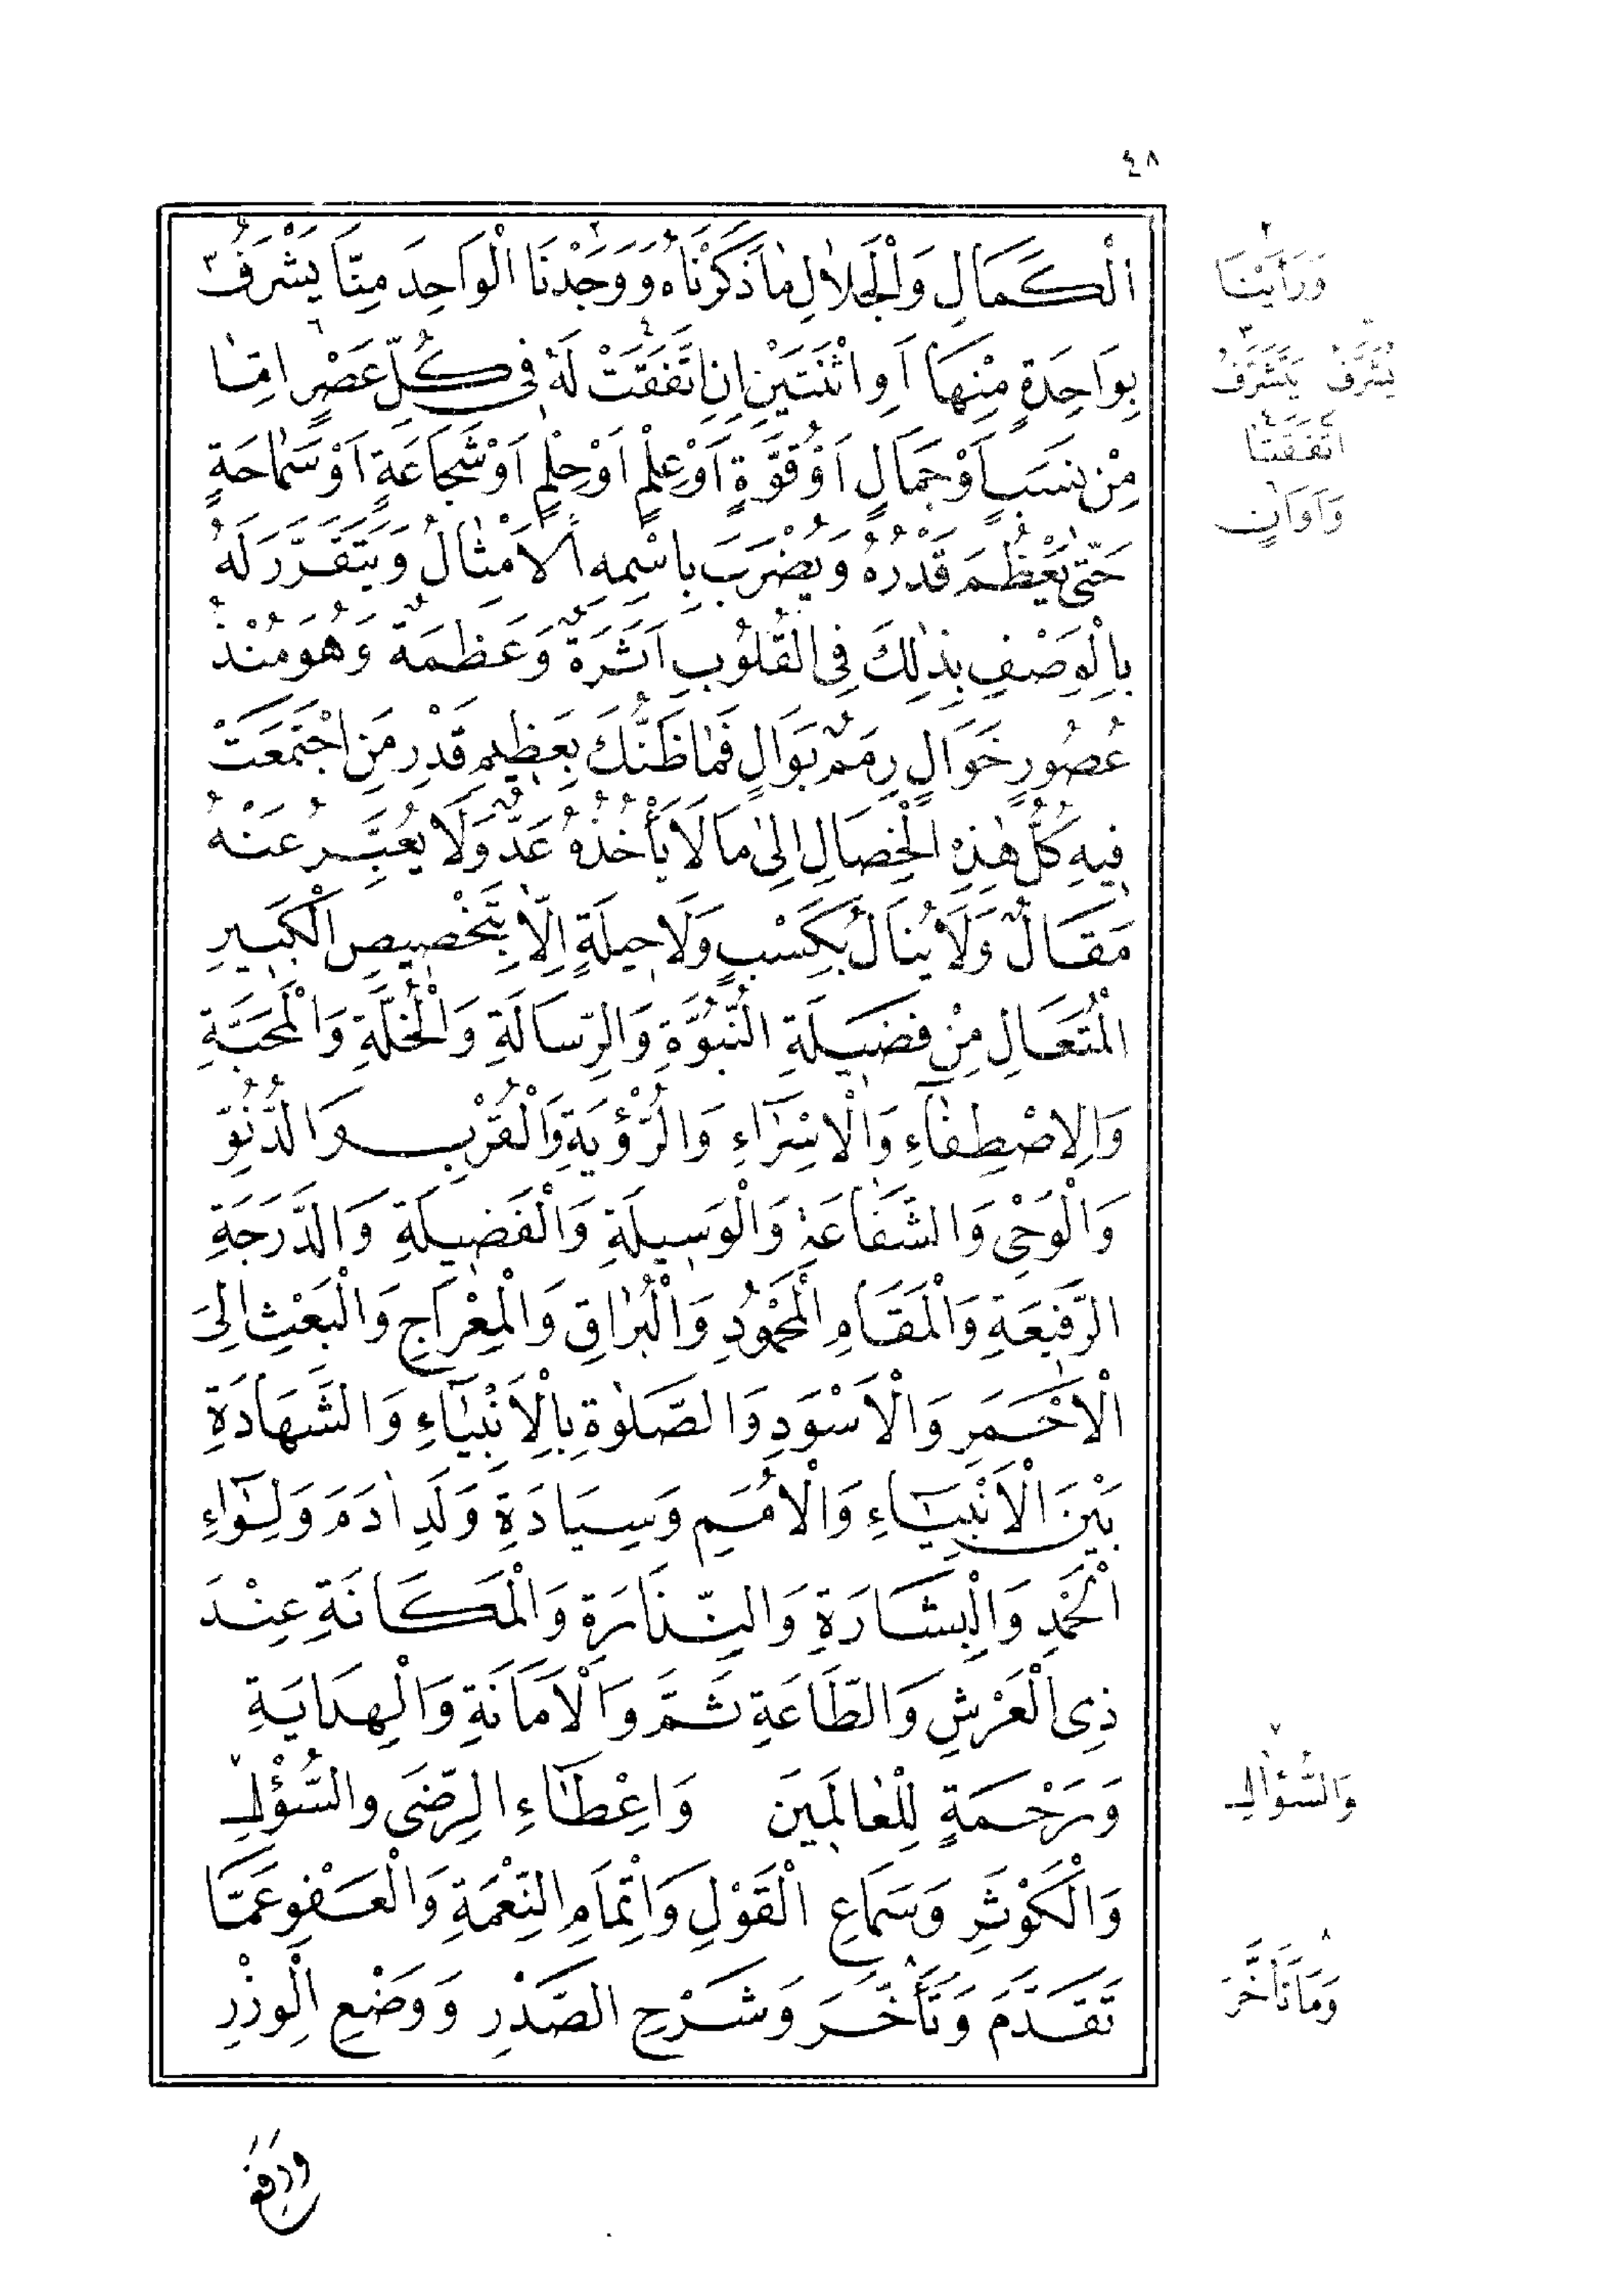 ٤٨
الْكَمَالِ وَالْجَلَالِ مَا ذَكَرْنَاهُ وَوَجَدْنَا الْوَاحِدَ مِنَّا يَشْرُفُ
بِوَاحِدَةٍ مِنْهَا اَوِ اثْنَتَيْنِ اِنِ اتَّفَقَتْ لَهُ فِى كُلِّ عَصْرٍ اِمَّا
مِنْ نَسَبٍ اَوْ جَمَالٍ اَوْ قُوَّةٍ اَوْ عِلْمٍ اَوْ حِلْمٍ اَوْ شَجَاعَةٍ اَوْ سَمَاحَةٍ
حَتّٰى يَعْظُمَ قَدْرُهُ وَيُضْرَبَ بِاسْمِهِ الْاَمْثَالُ وَيَتَقَرَّرَ لَهُ
بِالْوَصْفِ بِذٰلِكَ فِى الْقُلُوبِ اَثَرَةٌ وَعَظَمَةٌ وَهُوَ مُنْذُ
عُصُورٍ خَوَالٍ رِمَمٌ بَوَالٍ فَمَا ظَنُّكَ بِعَظِيمِ قَدْرِ مَنِ اجْتَمَعَتْ
فِيهِ كُلُّ هٰذِهِ الْخِصَالِ اِلٰى مَا لَا يَأْخُذُهُ عَدٌّ وَلَا يُعَبِّرُ عَنْهُ
مَقَالٌ وَلَا يُنَالُ بِكَسْبٍ وَلَا حِيلَةٍ اِلَّا بِتَخْصِيصِ الْكَبِيرِ
الْمُتَعَالِ مِنْ فَضِيلَةِ النُّبُوَّةِ وَالرِّسَالَةِ وَالْخُلَّةِ وَالْمَحَبَّةِ
وَالِاصْطِفَآءِ وَالْاِسْرَآءِ وَالرُّؤْيَةِ وَالْقُرْبِ وَالدُّنُوِّ
وَالْوَحْىِ وَالشَّفَاعَةِ وَالْوَسِيلَةِ وَالْفَضِيلَةِ وَالدَّرَجَةِ
الرَّفِيعَةِ وَالْمَقَامِ الْمَحْمُودِ وَالْبُرَاقِ وَالْمِعْرَاجِ وَالْبَعْثِ اِلَى
الْاَحْمَرِ وَالْاَسْوَدِ وَالصَّلٰوةِ بِالْاَنْبِيَآءِ وَالشَّهَادَةِ
بَيْنَ الْاَنْبِيَآءِ وَالْاُمَمِ وَسِيَادَةِ وَلَدِ اٰدَمَ وَلِوَآءِ
الْحَمْدِ وَالْبِشَارَةِ وَالنِّذَارَةِ وَالْمَكَانَةِ عِنْدَ
ذِى الْعَرْشِ وَالطَّاعَةِ ثَمَّ وَالْاَمَانَةِ وَالْهِدَايَةِ
وَرَحْمَةٍ لِلْعَالَمِينَ وَاِعْطَآءِ الرِّضَى وَالسُّؤْلِ
وَالْكَوْثَرِ وَسَمَاعِ الْقَوْلِ وَاِتْمَامِ النِّعْمَةِ وَالْعَفْوِ عَمَّا
تَقَدَّمَ وَتَأَخَّرَ وَشَرْحِ الصَّدْرِ وَوَضْعِ الْوِزْرِ
وَرَأَيْنَا
يُشَرَّفُ يَتَشَرَّفُ
اتَّفَقَتَا
وَاَوَانٍ
وَالسُّؤَالِ
وَمَا تَأَخَّرَ
وَرَفْعِ